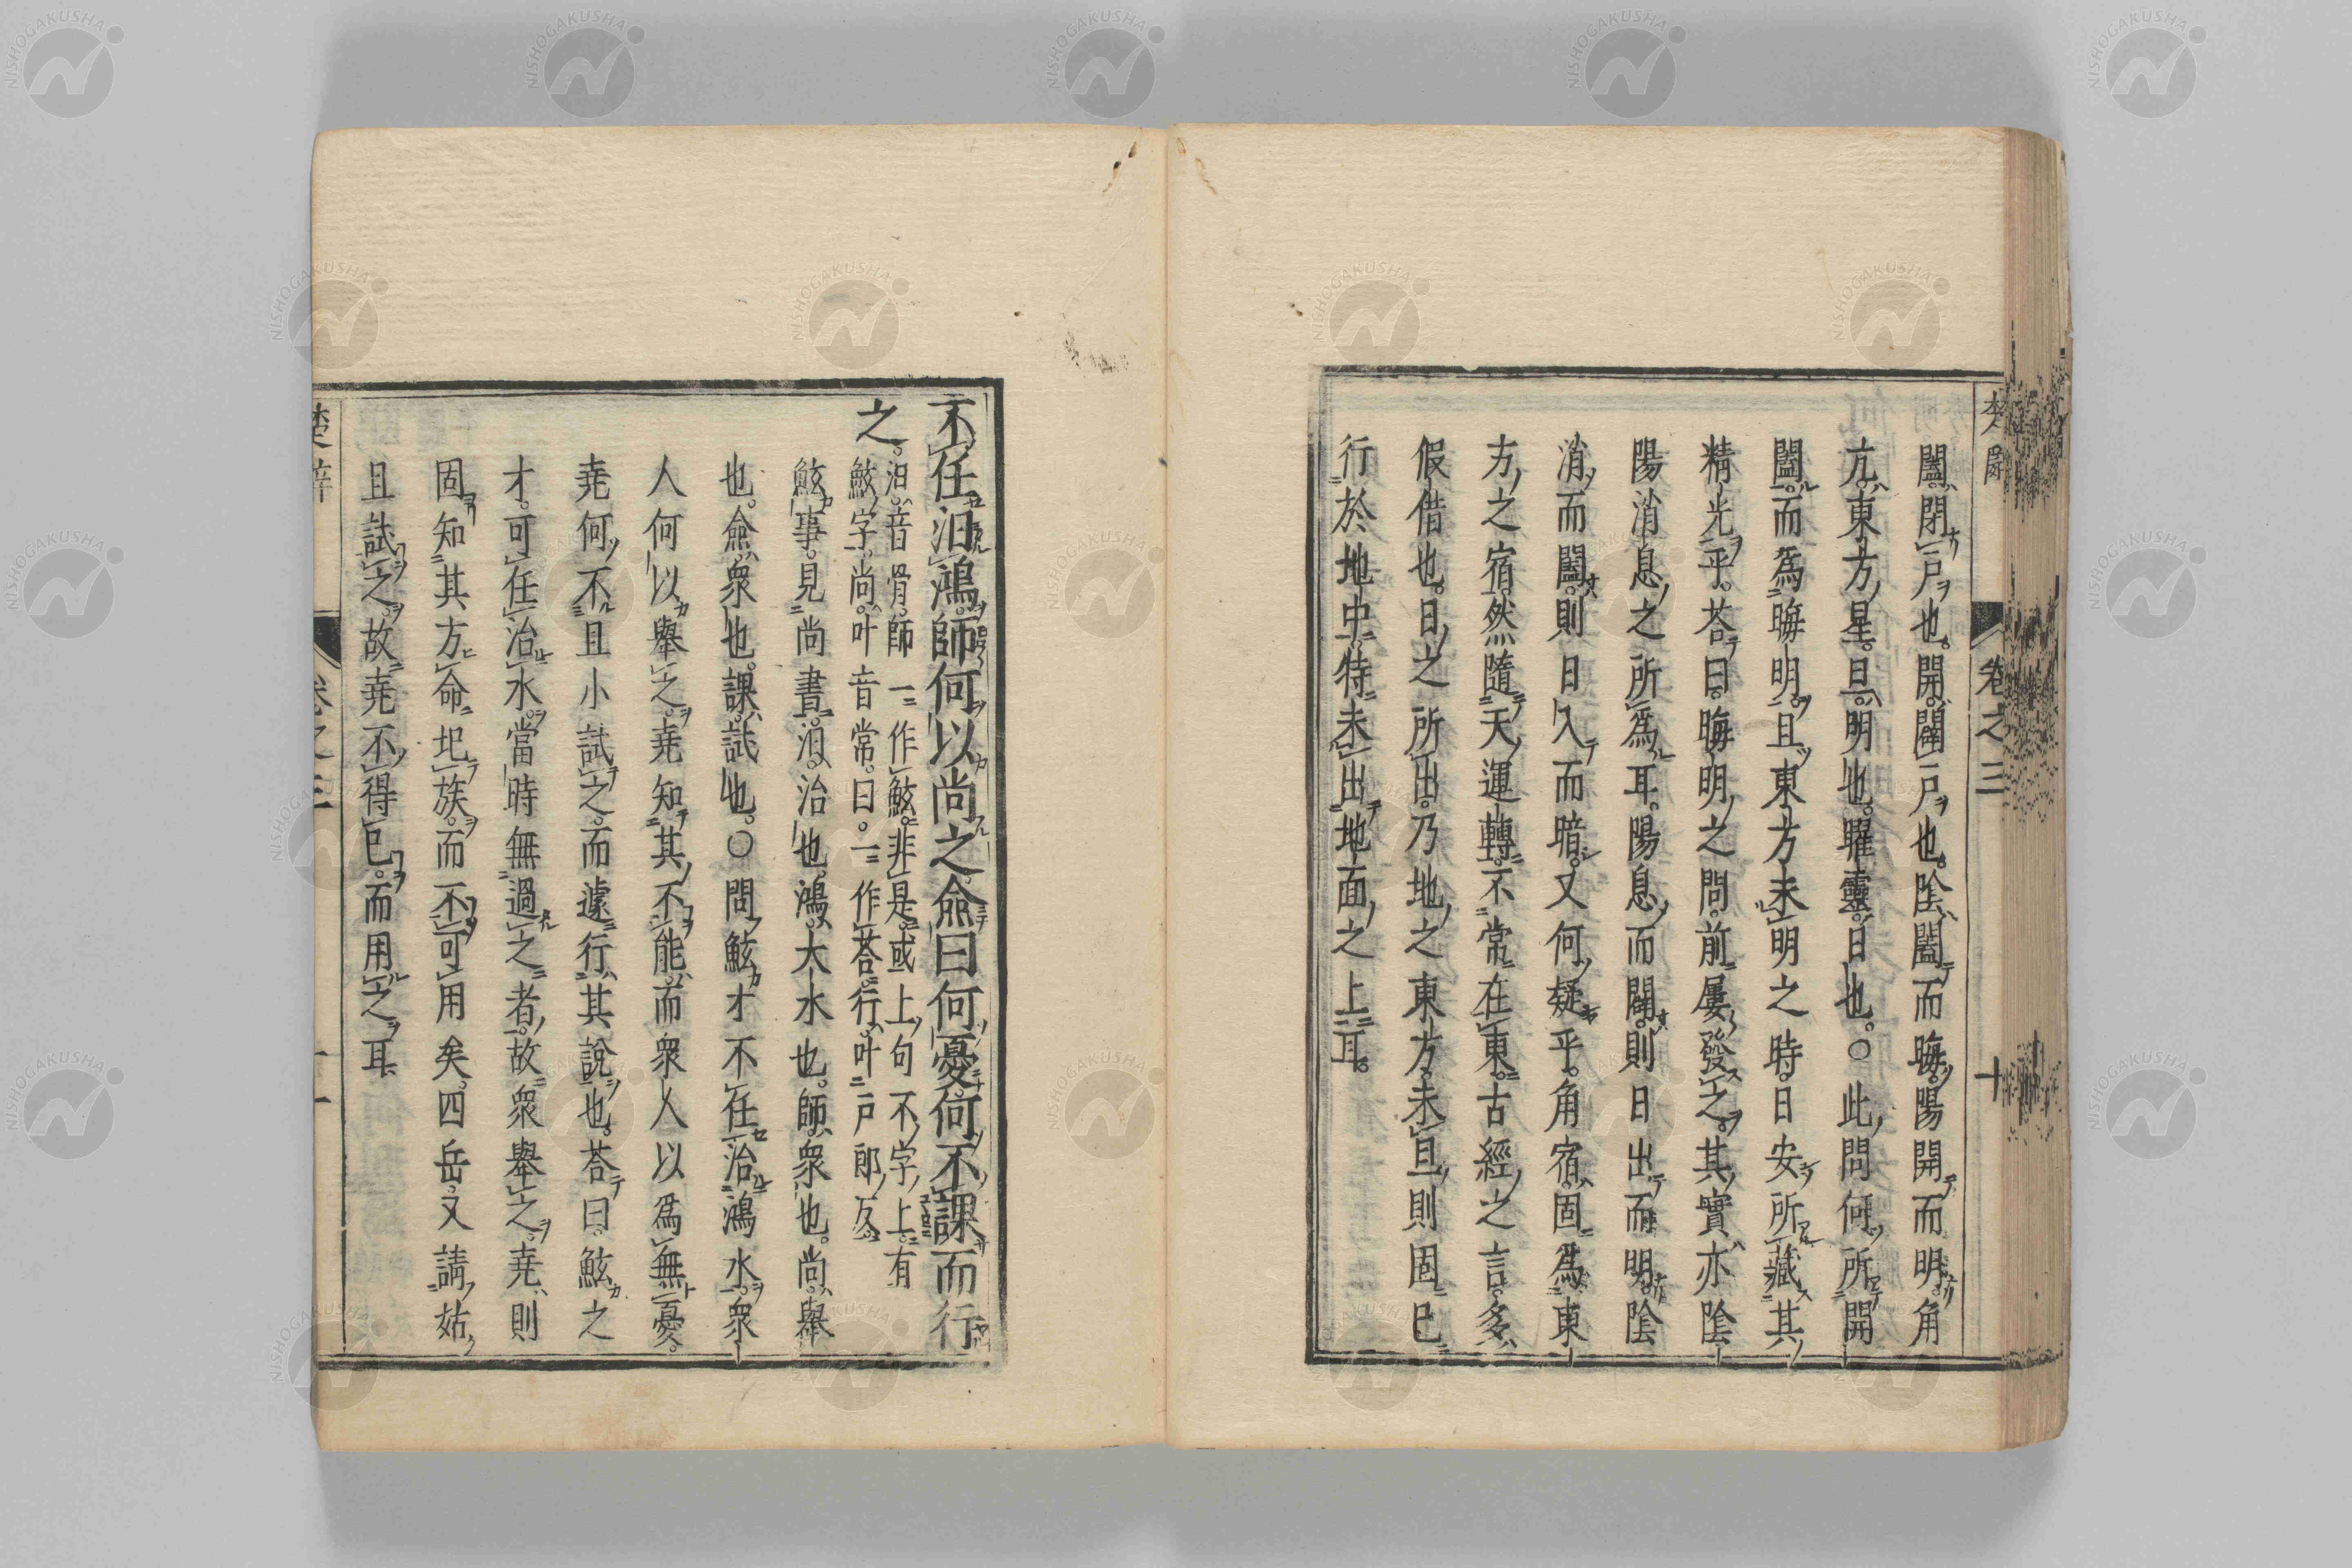 闔閉戶也。開闢戶也。陰闔而晦。陽開而明。角
亢。東方星。旦。明也。曜靈。日也。○此問。何所開
闔。而爲晦明。且東方未明之時。日安所藏其
精光乎。荅曰。晦明之問。前屢發之。其實亦陰
陽消息之所爲耳。陽息而闢。則日出而明。陰
消而闔。則日入而暗。又何疑乎。角宿。固爲東
方之宿。然隨天運轉。不常在東。古經之言。多
假借也。日之所出。乃地之東方。未旦則固已
行於地中。特未出地面之上耳。
卷之三
十
不任汨鴻。師何以尚之。僉曰何憂。何不課而行
之。
汨。音骨。師一作鮌。非是。或上句不字上。有
鮌字。尚。叶音常。曰。一作荅。行。叶戶郎反。
鮌事。見尚書。汨。治也。鴻。大水也。師。衆也。尚。舉
也。僉。衆也。課。試也。○問鮌才不任治鴻水。衆
人何以舉之。堯知其不能。而衆人以爲無憂。
堯何不且小試之。而遽行其說也。荅曰。鮌之
才。可任治水。當時無過之者。故衆舉之。堯則
固知其方命圯族。而不可用矣。四岳又請姑
且試之。故堯不得已。而用之耳
楚辭
卷之三
十一
NISHOGAKUSHA